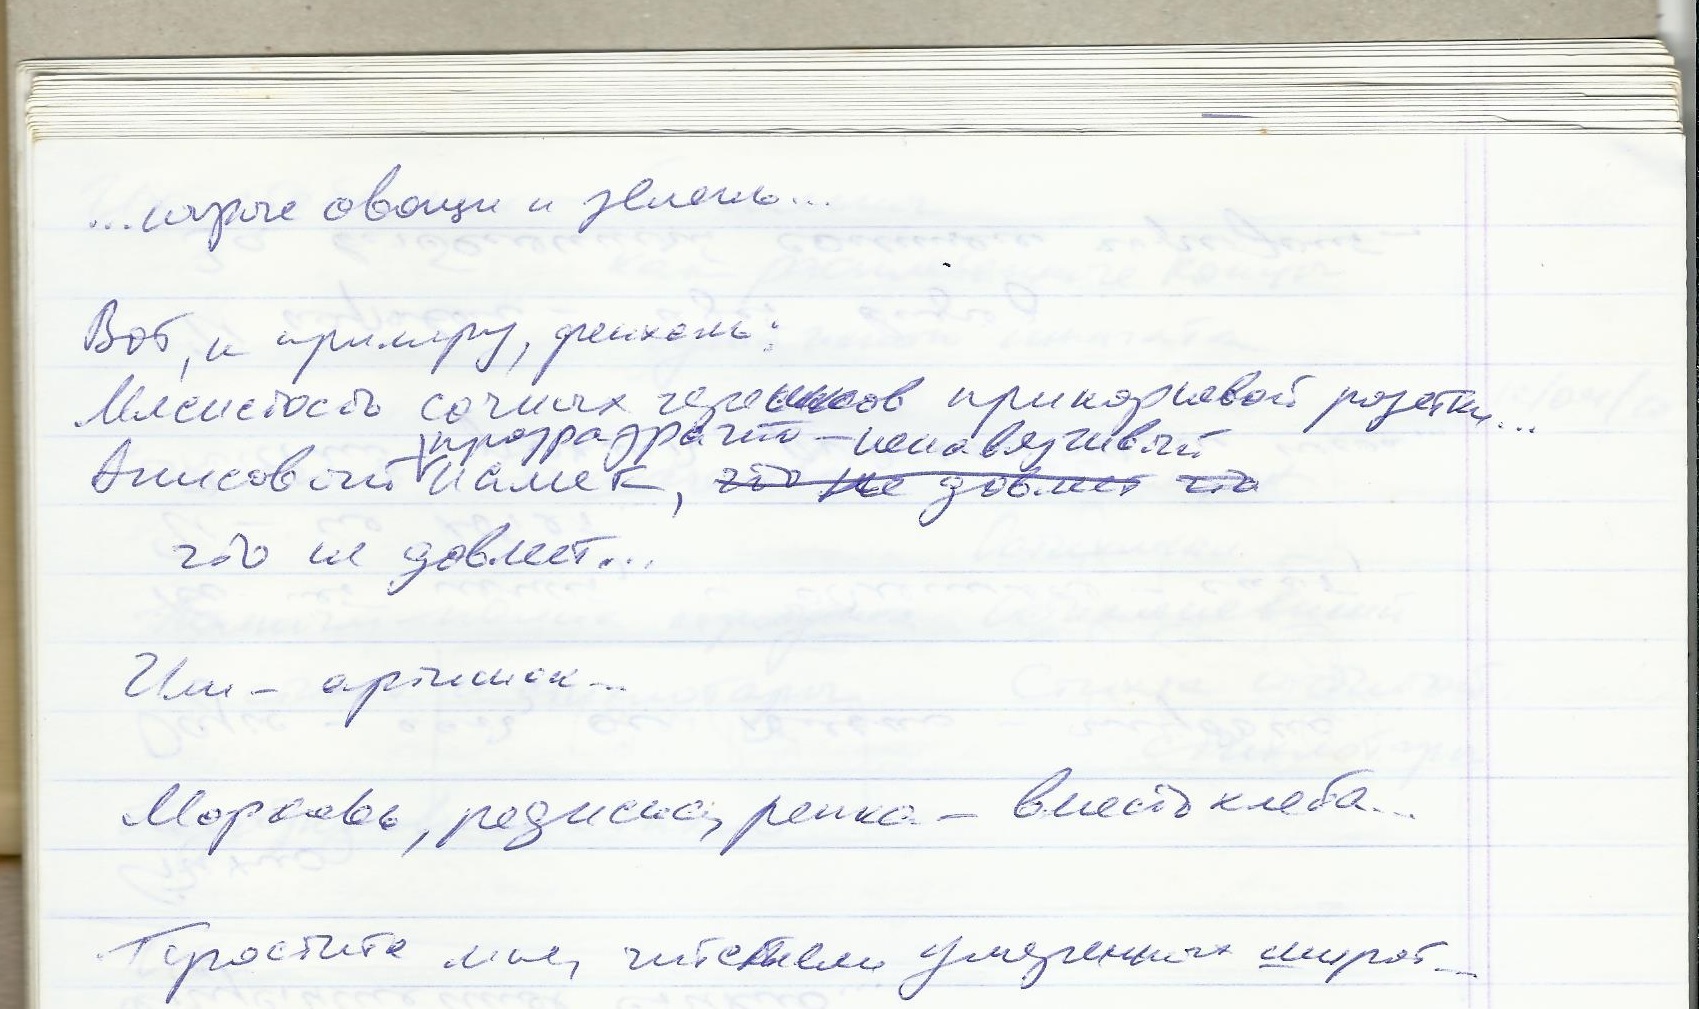 ...парче овощи и зелень...
Вот, к примеру, фенхель:
Мясистость сочных черешков прикорневой розетки...
прозрадрачно-ненавязчивый
Анисовый намек, что не довлеет что
что не довлеет...
Или - артишок...
Морковь, редиска, репка - вместо хлеба...
Простите мне, читатели умеренных широт...